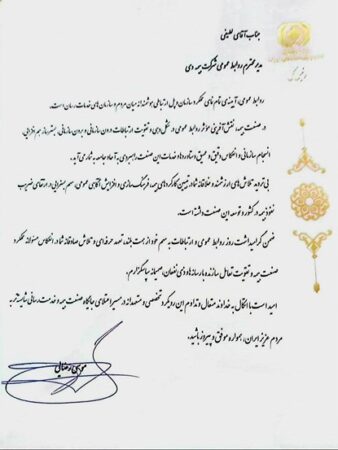 جناب آقای لطیفی
مدیر محترم روابط عمومی شرکت بیمه دی
روابط عمومی، آیینه‌ی تمام نمای عملکرد و سازمان و پل ارتباطی هوشمندانه میان مردم و سازمان‌های خدمات رسان است.
در صنعت بیمه، نقش‌آفرینی مؤثر روابط عمومی در شکل دهی و تقویت ارتباطات درون سازمانی و برون سازمانی، بسترساز هم افزایی
انسجام سازمانی و انعکاس دقیق و عمیق دستاوردها و خدمات این صنعت راهبردی به آحاد جامعه به شمار می آید.
بی تردید تلاش های ارزشمند و خلاقانه شما در تبیین کارکردهای بیمه، فرهنگ سازی و افزایش آگاهی عمومی، سهم بسزایی در ارتقای ضریب
نفوذ بیمه در کشور و توسعه این صنعت داشته است.
ضمن گرامیداشت روز روابط عمومی و ارتباطات به سهم خود از همت بلند، تعهد حرفه ای و تلاش صادقانه شما در انعکاس مسئولانه عملکرد
صنعت بیمه و تقویت تعامل سازنده با رسانه ها و ذی نفعان، صمیمانه سپاسگزارم.
امید است با اتکال به خداوند متعال و تداوم این رویکرد تخصصی و متعهدانه در مسیر اعتلای جایگاه صنعت بیمه و خدمت رسانی شایسته تر به
مردم عزیز ایران، همواره موفق و پیروز باشید.
موسی رضایی